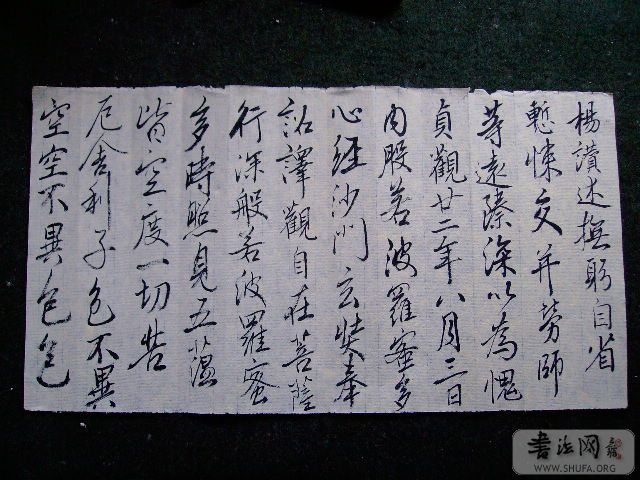 楊讚述撫躬自省
慙悚交并勞師
等遠臻深以為愧
貞觀廿二年八月三日
內般若波羅蜜多
心經沙門玄奘奉
詔譯觀自在菩薩
行深般若波羅蜜
多時照見五蘊
皆空度一切苦
厄舍利子色不異
空空不異色色
書法网
WWW.SHUFA.ORG